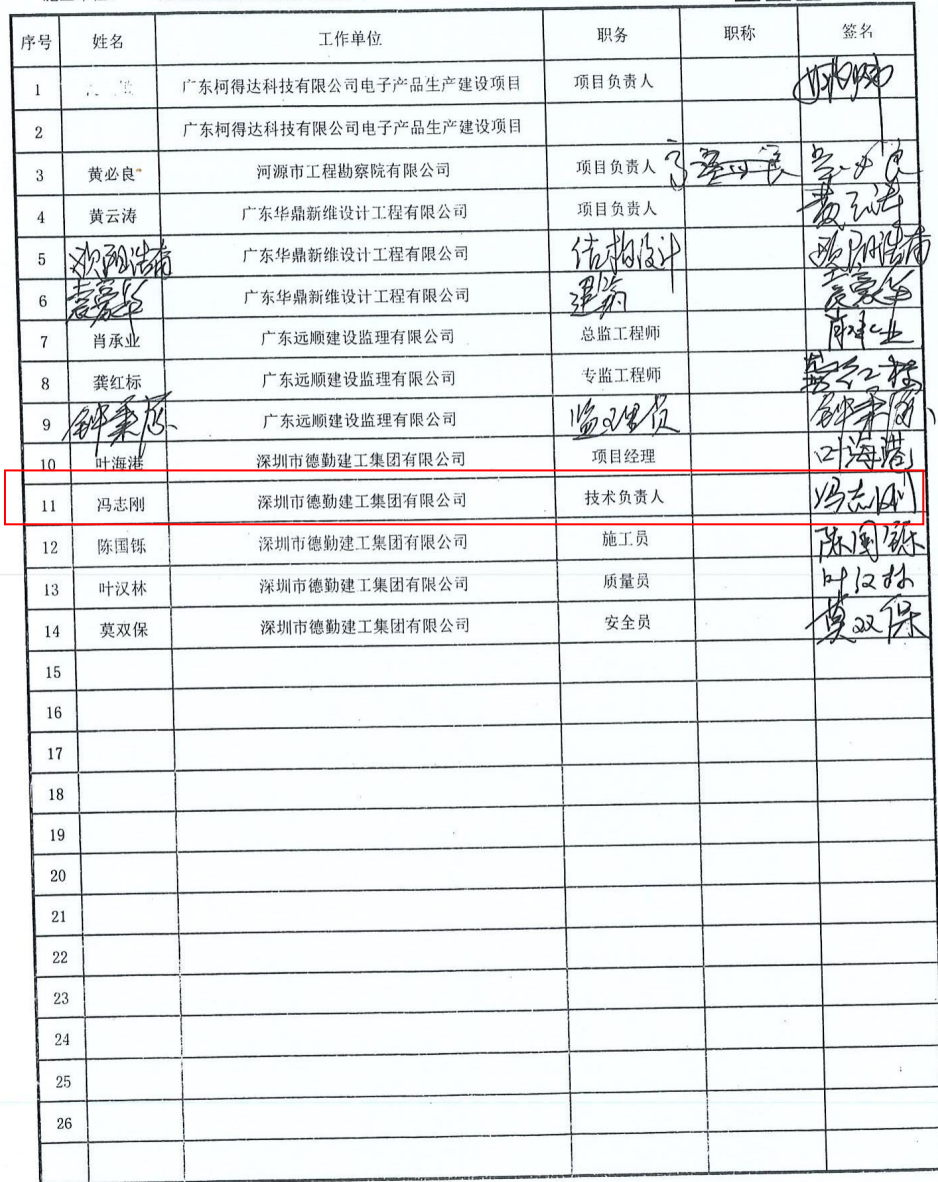 序号 姓名 工作单位 职务 职称 签名
1 广东柯得达科技有限公司电子产品生产建设项目 项目负责人
2 广东柯得达科技有限公司电子产品生产建设项目
3 黄必良 河源市工程勘察院有限公司 项目负责人
4 黄云涛 广东华鼎新维设计工程有限公司 项目负责人 黄云涛
5 欧阳浩南 广东华鼎新维设计工程有限公司 结构设计 欧阳浩南
6 袁豪华 广东华鼎新维设计工程有限公司 建筑 袁豪华
7 肖承业 广东远顺建设监理有限公司 总监工程师 肖承业
8 龚红标 广东远顺建设监理有限公司 专监工程师 龚红标
9 钟秉 广东远顺建设监理有限公司 监理员 钟秉
10 叶海港 深圳市德勤建工集团有限公司 项目经理 叶海港
11 冯志刚 深圳市德勤建工集团有限公司 技术负责人 冯志刚
12 陈国铄 深圳市德勤建工集团有限公司 施工员 陈国铄
13 叶汉林 深圳市德勤建工集团有限公司 质量员 叶汉林
14 莫双保 深圳市德勤建工集团有限公司 安全员 莫双保
15
16
17
18
19
20
21
22
23
24
25
26